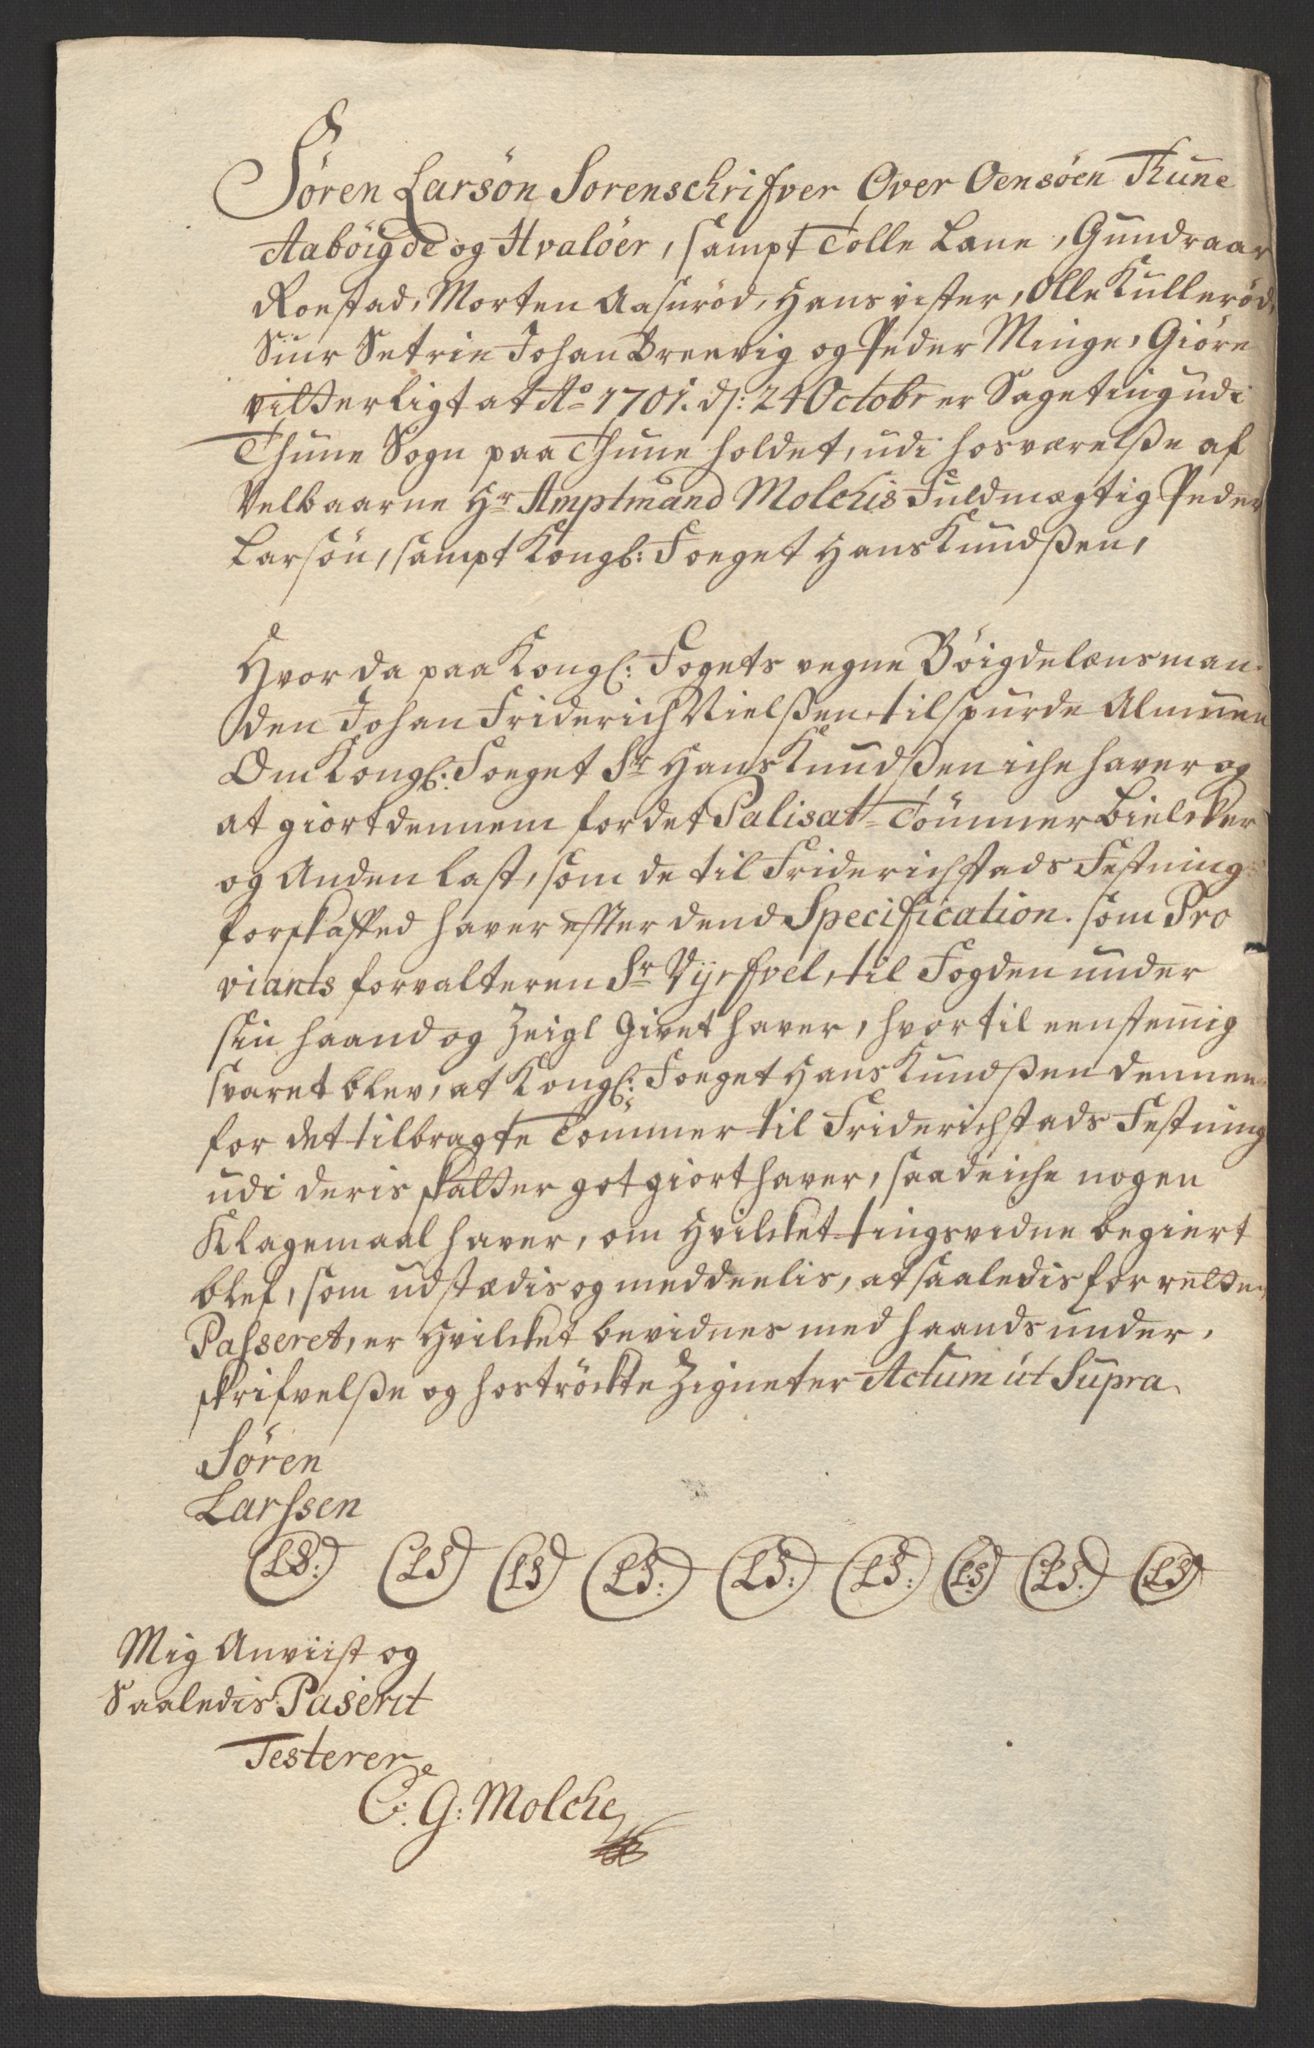 Søren Larsøn Sorenschrifver Over Oensøen Thune
Aabøigde og Hvaløer, sampt Tolle Lane, Gundraar
Roestad, Morten Aaserød, Hans vister, Olle Kullerød,
Siur Setrie Johan Breevig og Peder Minge, Giøre
vitterligt at Ao 1701. d: 24 Octobr er Sageting udi
Thune Sogn paa Thune holdet, udi hosværelße af
Velbaarne Hr Amptmand Molchis Fuldmægtig Peder
Larsøn, sampt Kongl: Foeget Hans Knudßen,
Hvor da paa Kongl: Fogets vegne Bøigdelænsman-
den Johan Friderich Nielßen tilspurde Almuen
Om Kongl: Foeget Sr Hans Knudßen iche haver og
at giort dennem for det Palisat-Tømmer Bielcker
og Anden Last, som de til Friderichstads Festning
forskaffed haver efter dend Specification. som Pro
viants forvalteren Sr Vyrfvel, til Fogden under
sin haand og Zeigl Givet haver, hvortil eenstemig
svaret blev, at Kongl: Foeget Hans Knudßen dennem
for det tilbragte Tømmer til Friderichstads Festning
udi deris skatter got giort haver, saa de iche nogen
Klagemaal haver, om Hvilcket tingsvidne begiert
blef, som udstædis og meddeelis, at saaledis for retten
Passeret, er Hvilcket bevidnes med haands under,
skrifvelße og hostrøckte Zigneter Actum ut Supra
Søren
Larssen
LS: LS LS LS: LS: LS: LS LS. LS
Mig Anviist og
Saaledis Paserit
Testerer
C: G: Molche